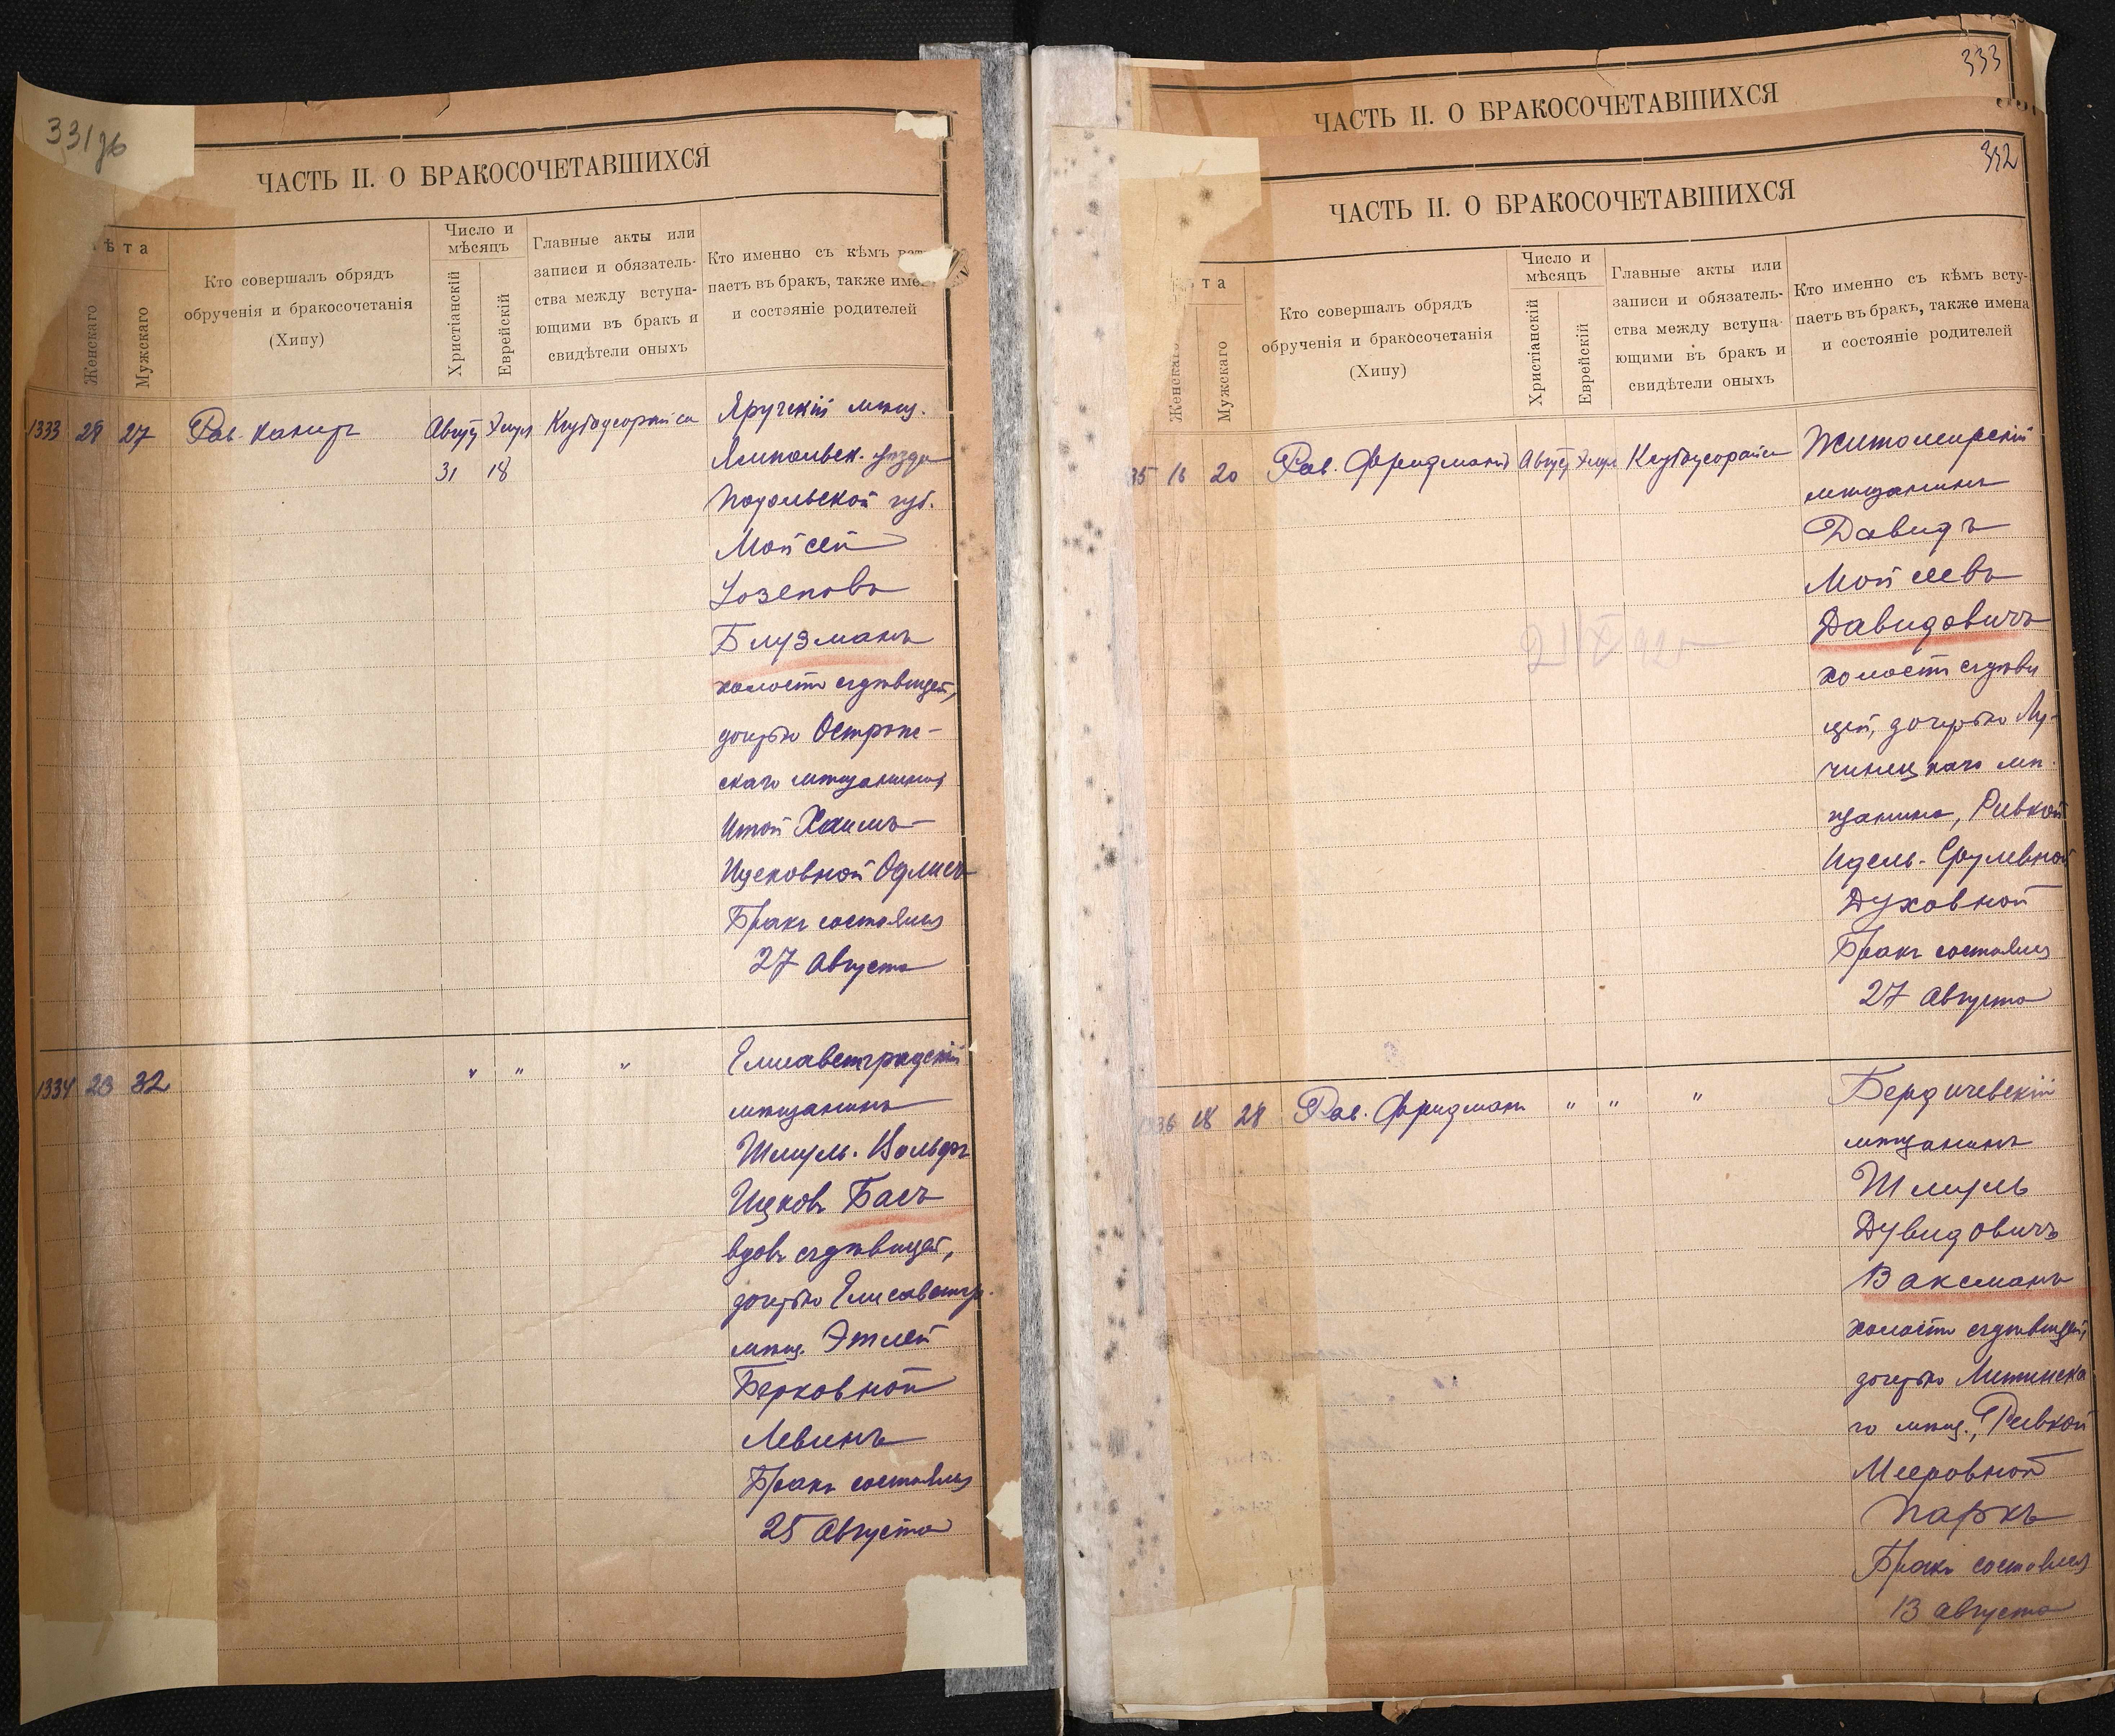 331 об
ЧАСТЬ II. О БРАКОСОЧЕТАВШИХСЯ
ѣта
Женскаго
Мужскаго
Кто совершалъ обрядъ
обрученія и бракосочетанія
(Хипу)
Число и
мѣсяцъ
Христіанскій
Еврейскій
Главные акты или
записи и обязатель-
ства между вступа-
ющими въ бракъ и
свидѣтели оныхъ
Кто именно съ кѣмъ
паетъ въ бракъ, также име
и состояніе родителей
1333 29 27 Рав. Август Элул
31 18
Яругскій мѣщ.
Ямпольск. уѣзда
Подольской губ.
Мойсей
Іозеповъ
Блузманъ
холостъ съ дѣвицей,
дочерью Острож-
скаго мѣщанина,
Итой Хаимъ-
Ицковной
Бракъ состоялся
27 Августа
1334 23 32 " " "
Елисаветградскій
мѣщанинъ
Шмуль-Вольфъ
Ицковъ Басъ
вдов. съ дѣвицей,
дочерью Елисаветгр.
мѣщ. Этлей
Берковной
Левинъ
Бракъ состоялся
25 Августа
333
ЧАСТЬ II. О БРАКОСОЧЕТАВШИХСЯ
332
ЧАСТЬ II. О БРАКОСОЧЕТАВШИХСЯ
та
Женскаго
Мужскаго
Кто совершалъ обрядъ
обрученія и бракосочетанія
(Хипу)
Число и
мѣсяцъ
Христіанскій
Еврейскій
Главные акты или
записи и обязатель-
ства между вступа-
ющими въ бракъ и
свидѣтели оныхъ
Кто именно съ кѣмъ всту-
паетъ въ бракъ, также имена
и состояніе родителей
35 16 20 Рав. Фридманъ Август Элул
Житомирскій
мѣщанинъ
Давидъ
Мойсеевъ
Давидовичъ
холостъ съ дѣви
цей, дочерью Лу-
чинецкаго мѣ-
щанина, Ривкой
Идель-Срулевной
Духовной
Бракъ состоялся
27 Августа
36 18 28 Рав. Фридманъ " " "
Бердичевскій
мѣщанинъ
Шмуль
Дувидовичъ
Ваксманъ
холостъ съ дѣвицей,
дочерью Литинска
го мѣщ., Ривкой
Мееровной
Паркъ
Бракъ состоялся
13 Августа